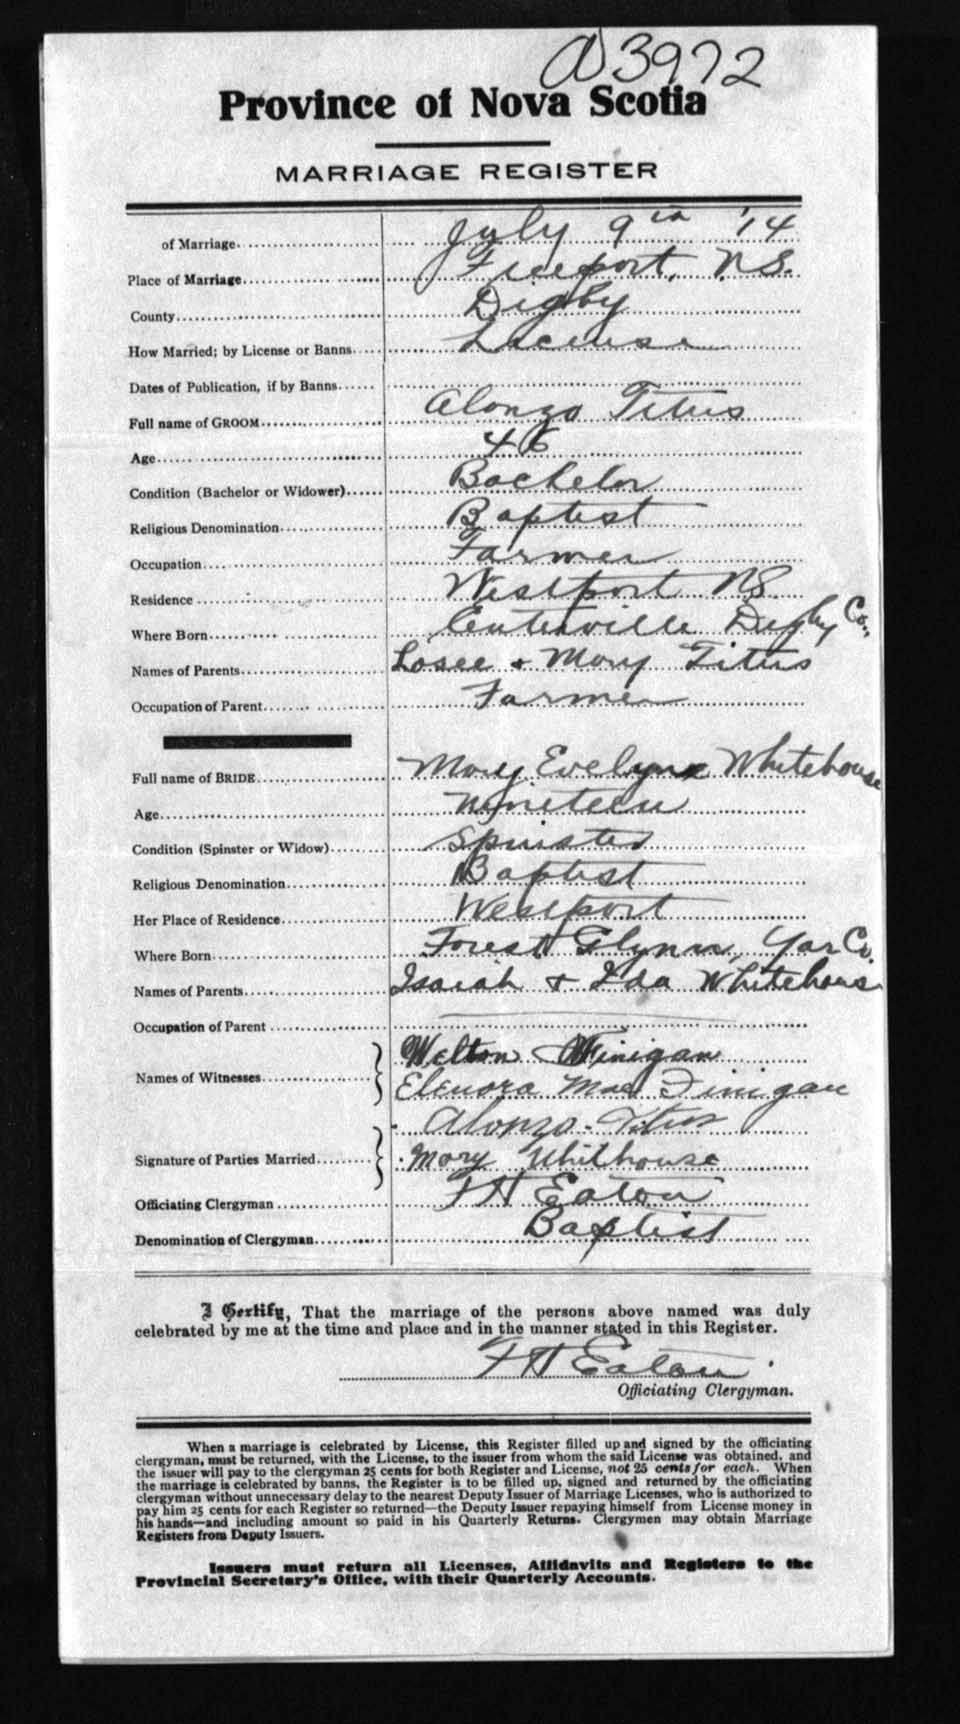 A 3972
Province of Nova Scotia
MARRIAGE REGISTER
of Marriage July 9th '14
Place of Marriage Freeport, N.S.
County Digby
How Married; by License or Banns License
Dates of Publication, if by Banns
Full name of GROOM Alonzo Titus
Age 46
Condition (Bachelor or Widower) Bachelor
Religious Denomination Baptist
Occupation Farmer
Residence Westport NS.
Where Born Centerville Digby Co.,
Names of Parents Losee & Mary Titus
Occupation of Parent Farmer
Full name of BRIDE Mary Evelyn Whitehouse
Age Nineteen
Condition (Spinster or Widow) Spinster
Religious Denomination Baptist
Her Place of Residence Westport
Where Born Forest Glynn, Yar Co.
Names of Parents Isaiah & Ida Whitehous
Occupation of Parent
Names of Witnesses Welton Finigan
Elenora Mae Finigan
Signature of Parties Married Alonzo Titus
Mary Whithouse
Officiating Clergyman F H Eaton
Denomination of Clergyman Baptist
I Certify, That the marriage of the persons above named was duly
celebrated by me at the time and place and in the manner stated in this Register.
F H Eaton
Officiating Clergyman.
When a marriage is celebrated by License, this Register filled up and signed by the officiating
clergyman, must be returned, with the License, to the issuer from whom the said License was obtained, and
the issuer will pay to the clergyman 25 cents for both Register and License, not 25 cents for each. When
the marriage is celebrated by banns, the Register is to be filled up, signed and returned by the officiating
clergyman without unnecessary delay to the nearest Deputy Issuer of Marriage Licenses, who is authorized to
pay him 25 cents for each Register so returned—the Deputy Issuer repaying himself from License money in
his hands—and including amount so paid in his Quarterly Returns. Clergymen may obtain Marriage
Registers from Deputy Issuers.
Issuers must return all Licenses, Affidavits and Registers to the
Provincial Secretary's Office, with their Quarterly Accounts.